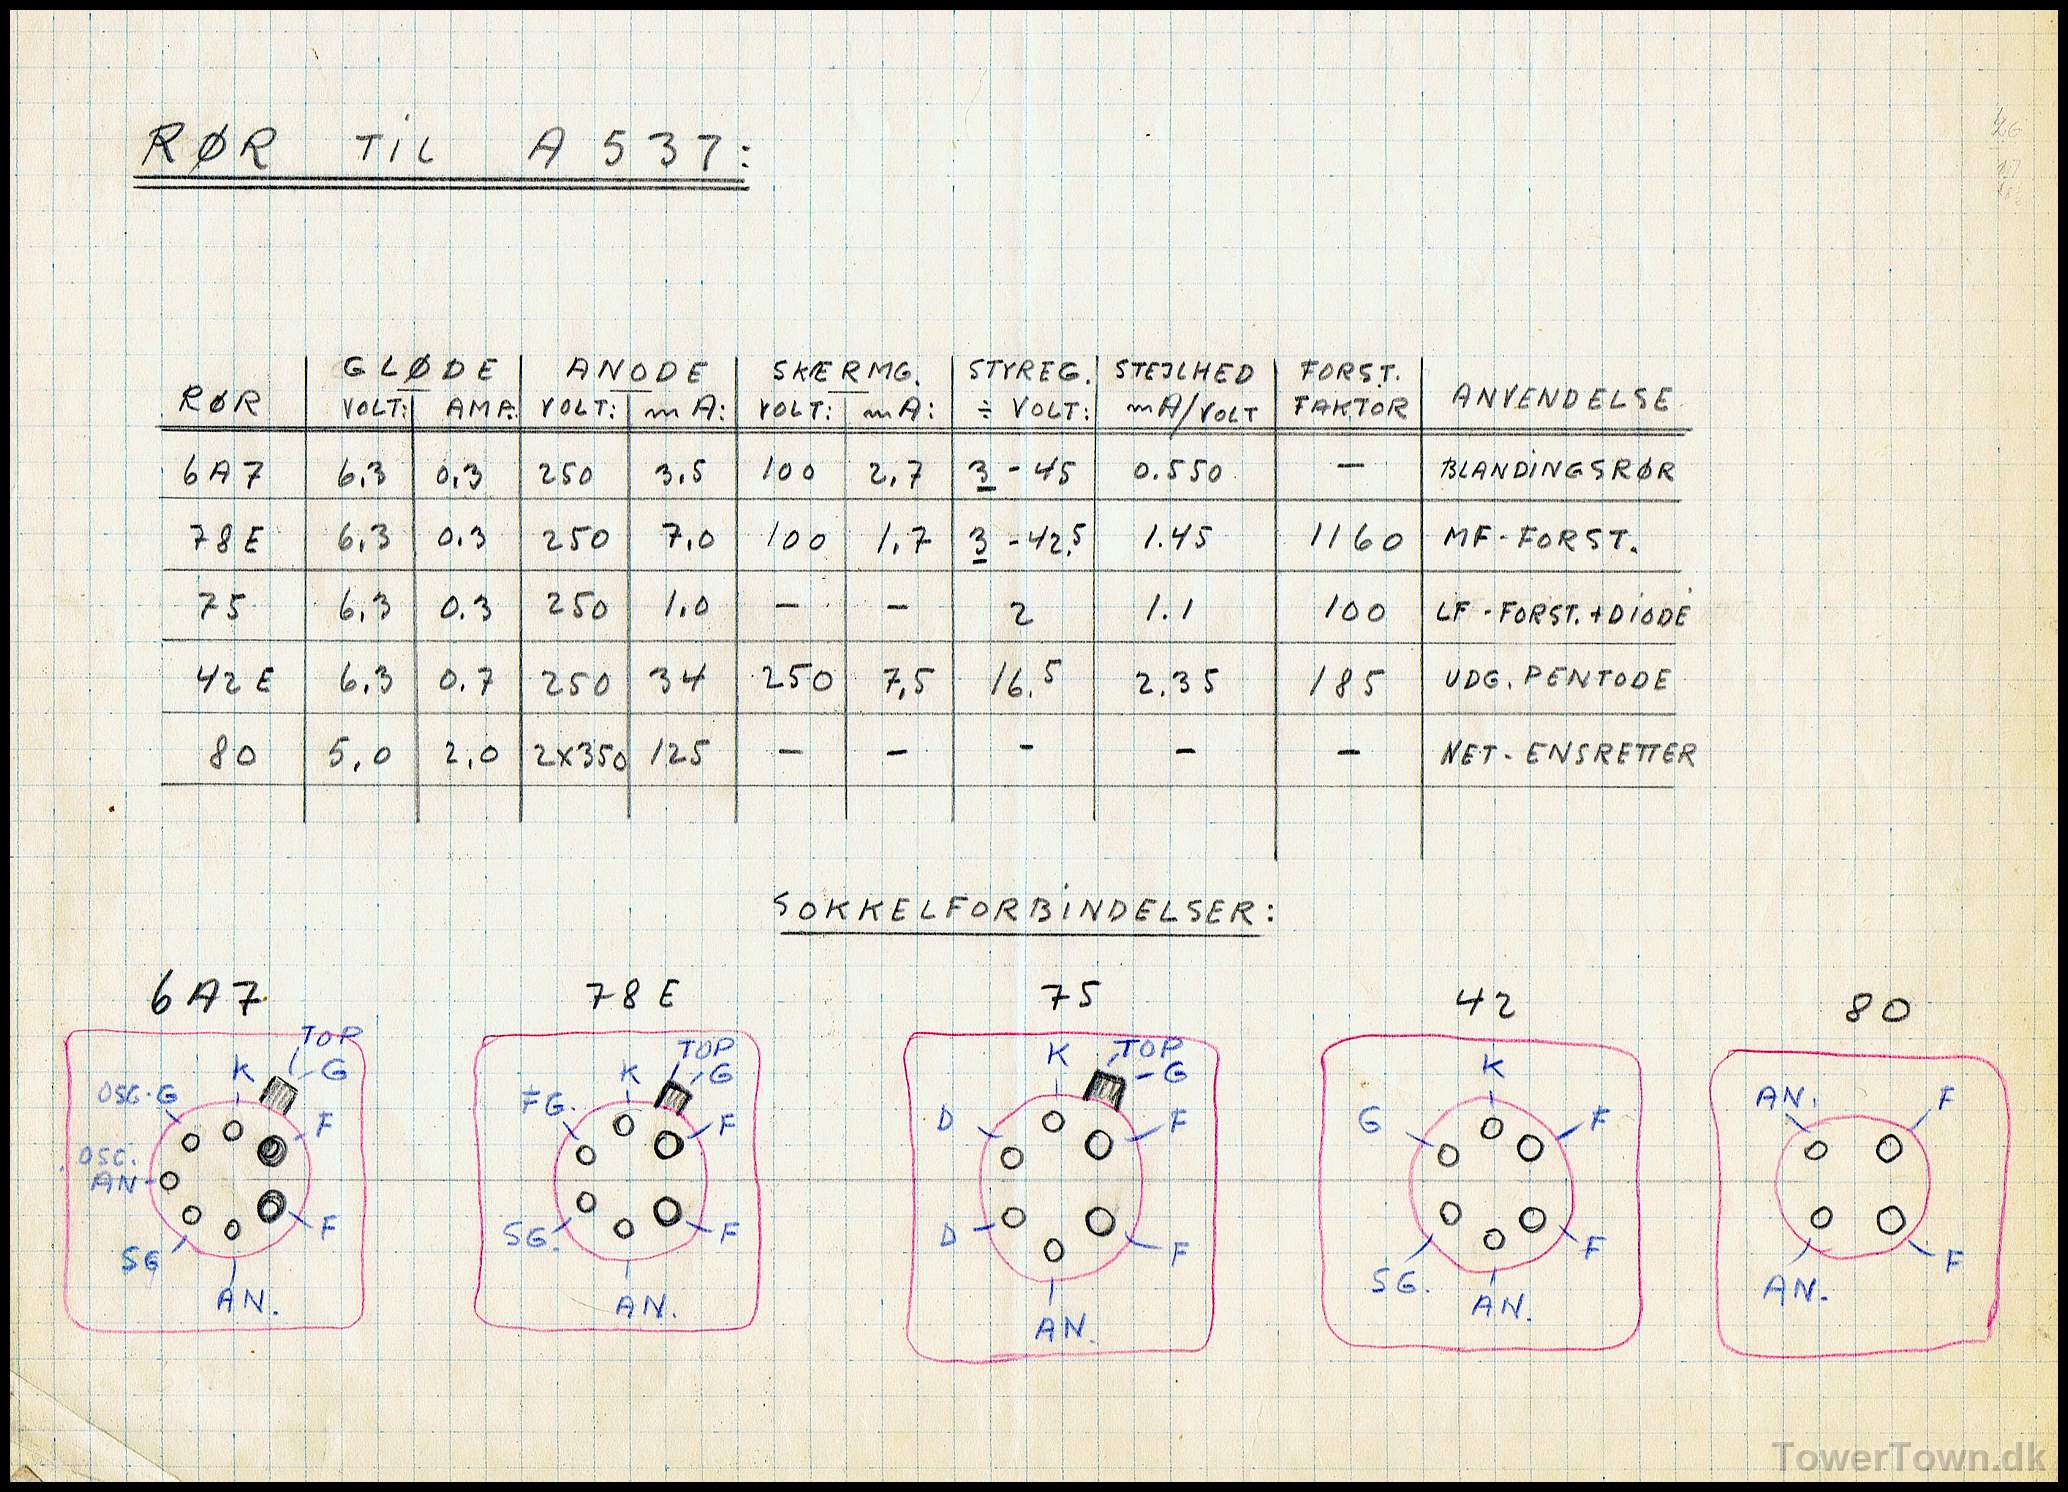 RØR TIL A 537:
GLØDE ANODE SKÆRMG. STYREG. STEJLHED FORST.
RØR VOLT: AMP. VOLT: mA: VOLT: mA: ÷ VOLT: mA/VOLT FAKTOR ANVENDELSE
6A7 6,3 0,3 250 3,5 100 2,7 3 - 45 0.550 — BLANDINGSRØR
78E 6,3 0.3 250 7,0 100 1,7 3 - 42,5 1.45 1160 MF-FORST.
75 6,3 0.3 250 1,0 — — 2 1.1 100 LF-FORST.+DIODE
42E 6,3 0.7 250 34 250 7,5 16.5 2.35 185 UDG. PENTODE
80 5,0 2,0 2x350 125 — — - — — NET-ENSRETTER
SOKKELFORBINDELSER:
6A7
TOP
K G
OSC. G
F
OSC.
AN
F
SG
AN.
78E
TOP
K G
FG.
F
SG.
F
AN.
75
K TOP
G
D F
D F
AN.
42
K
G F
F
SG.
AN.
80
AN. F
F
AN.
TowerTown.dk